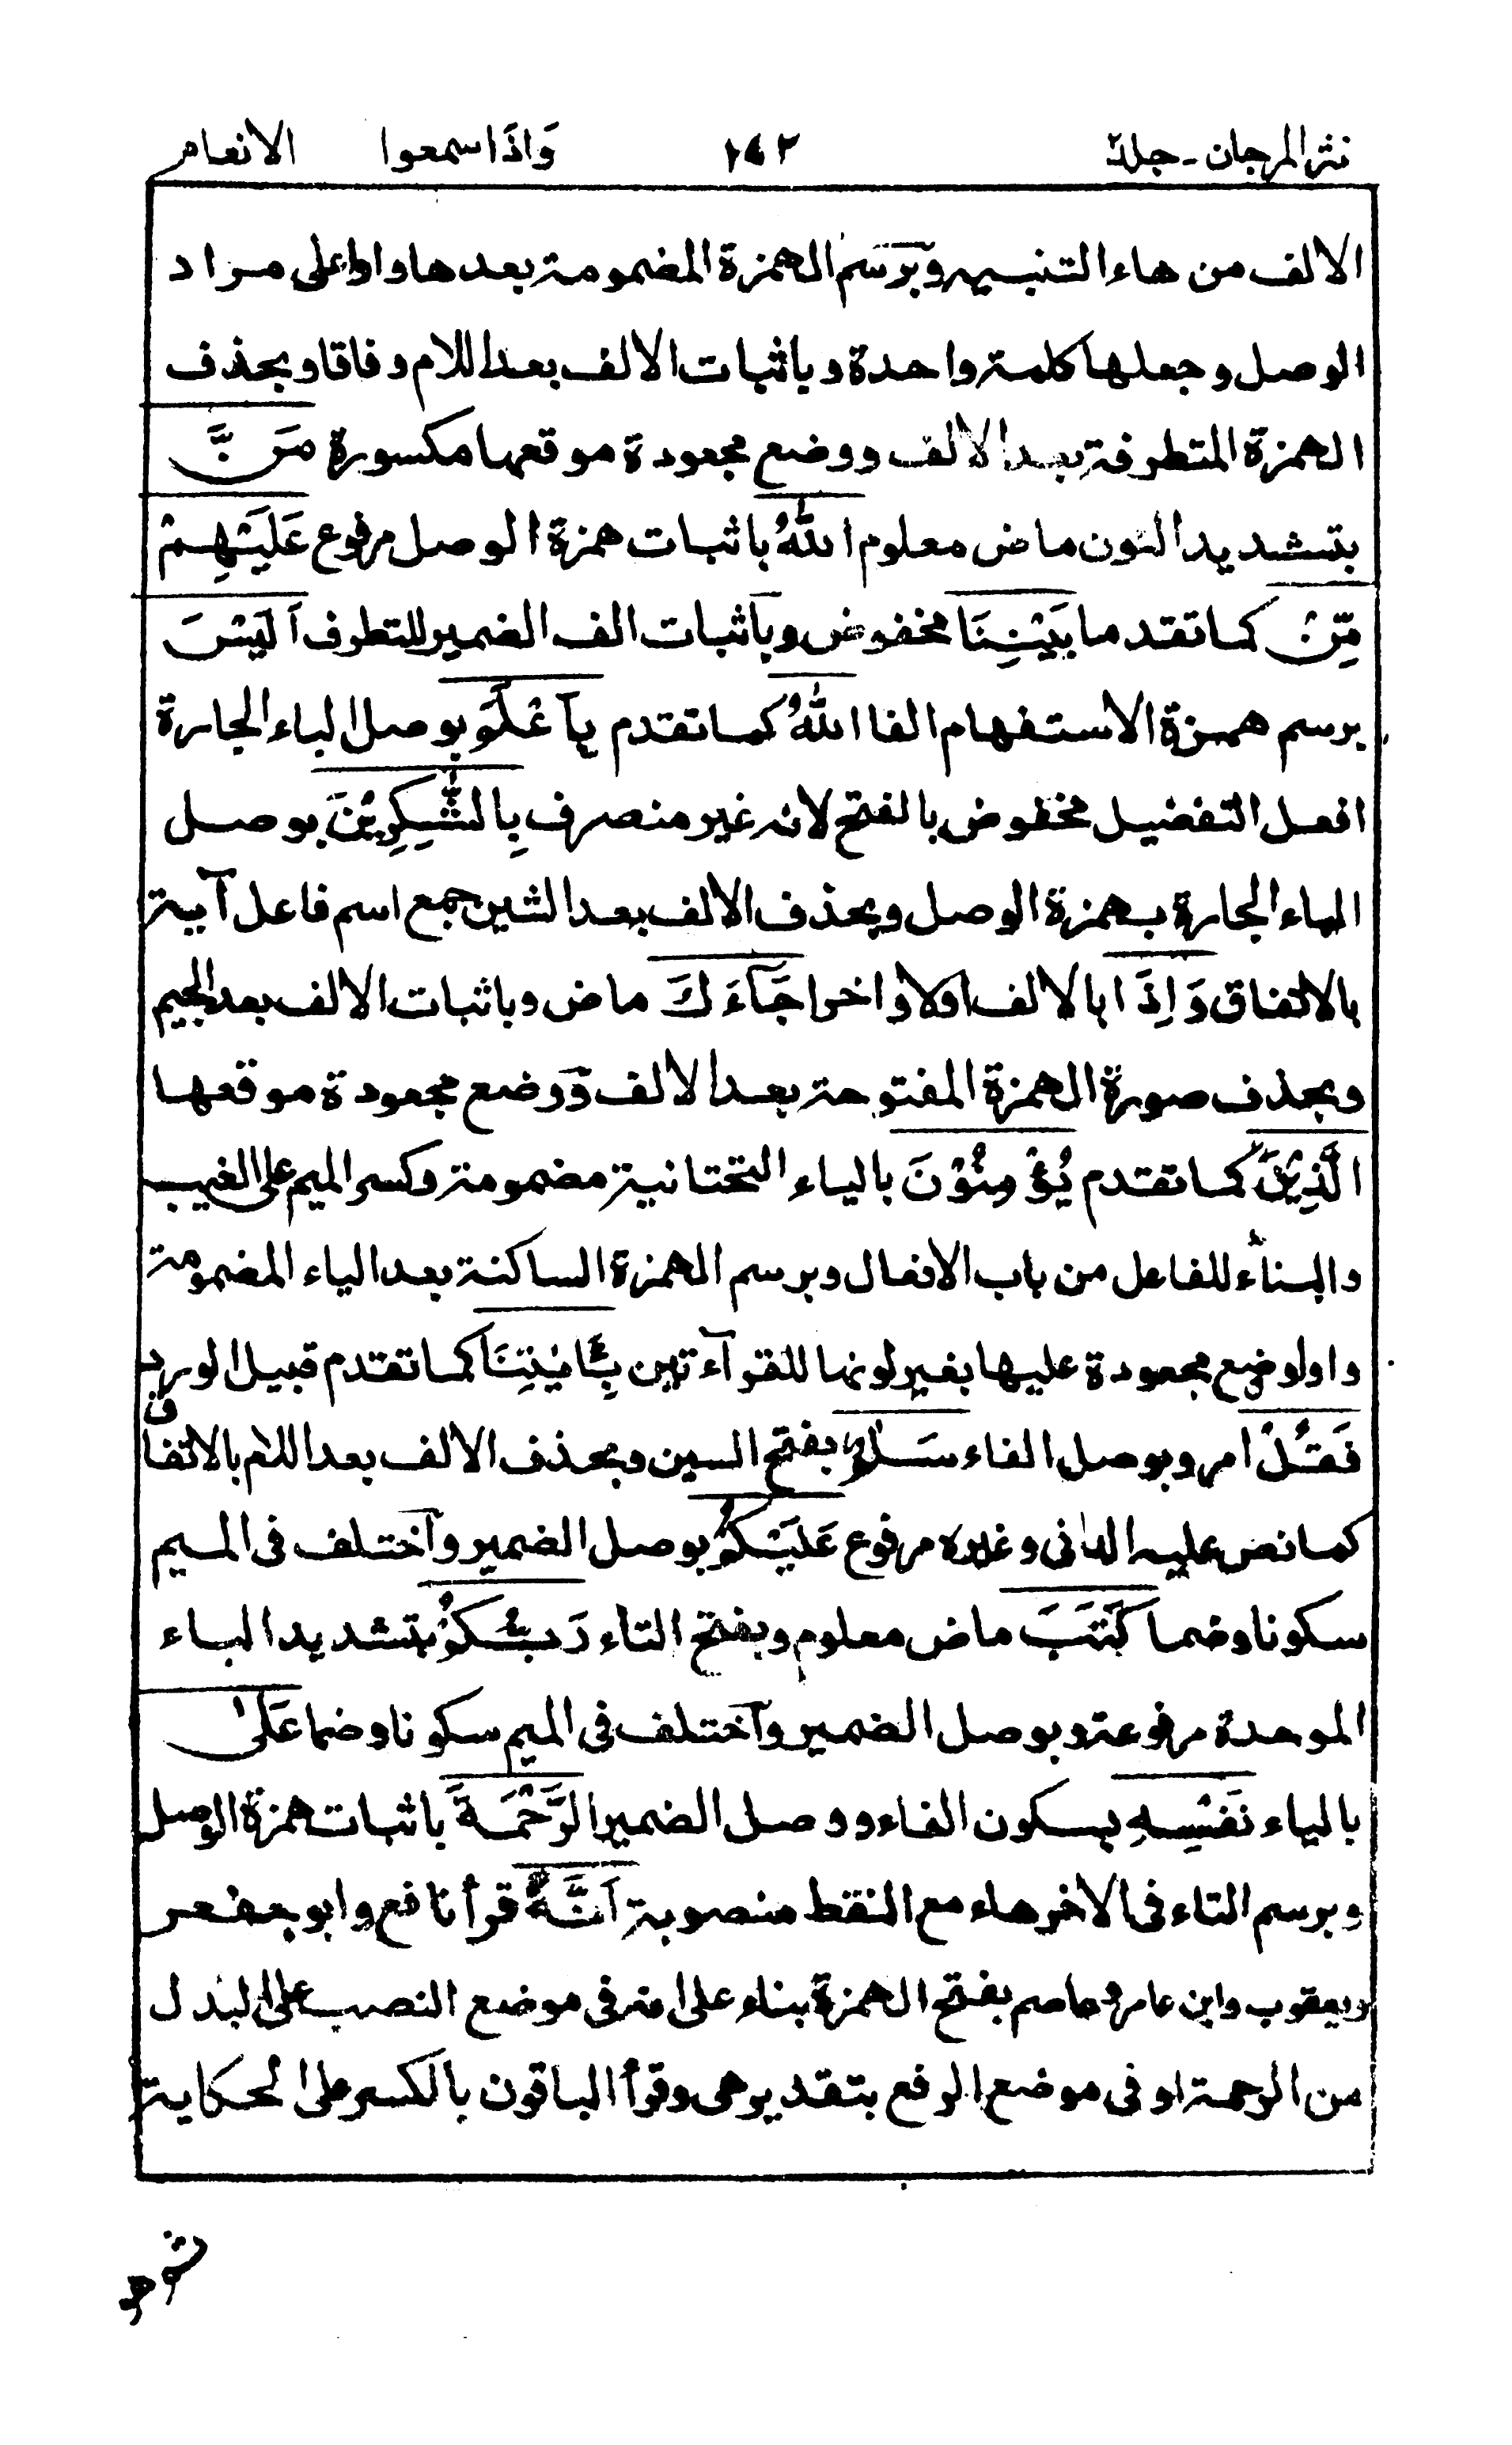 نثر المرجان - جلد ٢ ١٤٢ وَاِذَا سمعوا الانعام
الالف من هاء التنبيه وبرسم الهمزة المضمومة بعدها واوا على مراد
الوصل وجعلها كلمة واحدة وباثبات الالف بعد اللام وفاقا وبحذف
الهمزة المتطرفة بعد الالف ووضع مجعودة موقعها مكسورة مَنَّ
بتشديد النون ماض معلوم اللّٰهُ باثبات همزة الوصل مرفوع عَلَيْهِمْ
مِّنْ كما تقدما بَيْنِنَا مخفوض وباثبات الف الضمير للتطرف اَلَيْسَ
برسم همزة الاستفهام الفا اللّٰهُ كما تقدم بِاَعْلَمَ بوصل الباء الجارة
افعل التفضيل مخفوض بالفتح لانه غير منصرف بِالشّٰكِرِيْنَ بوصل
الباء الجارة بهمزة الوصل وبحذف الالف بعد الشين جمع اسم فاعل آية
بالاتفاق وَاِذَا بالالف اولا واخرا جَآءَكَ ماض وباثبات الالف بعد الجيم
وبحذف صورة الهمزة المفتوحة بعد الالف ووضع مجعودة موقعها
الَّذِيْنَ كما تقدم يُؤْمِنُوْنَ بالياء التحتانية مضمومة وكسر الميم على الغيب
والبناء للفاعل من باب الافعال وبرسم الهمزة الساكنة بعد الياء المضمومة
واوا ووضع مجعودة عليها بغير لونها للقرآءتين بِـَٔايٰتِنَا كما تقدم قبيل الورد
فَقُلْ امر وبوصل الفاء سَلٰمٌ بفتح السين وبحذف الالف بعد اللام بالاتفاق
كما نص عليه الدانى وغيره مرفوع عَلَيْكُمْ بوصل الضمير واختلف فى الميم
سكونا وضما كَتَبَ ماض معلوم وبفتح التاء رَبُّكُمْ بتشديد الباء
الموحدة مرفوعة وبوصل الضمير واختلف فى الميم سكونا وضما عَلٰى
بالياء نَفْسِهِ بسكون الفاء ووصل الضمير الرَّحْمَةَ باثبات همزة الوصل
وبرسم التاء فى الاخر هاء مع النقط منصوبة اَنَّهُ قرأ نافع وابو جعفر
ويعقوب وابن عامر وعاصم بفتح الهمزة بناء على انه فى موضع النصب على البدل
من الرحمة او فى موضع الرفع بتقدير هى وقرأ الباقون بالكسر على الحكاية